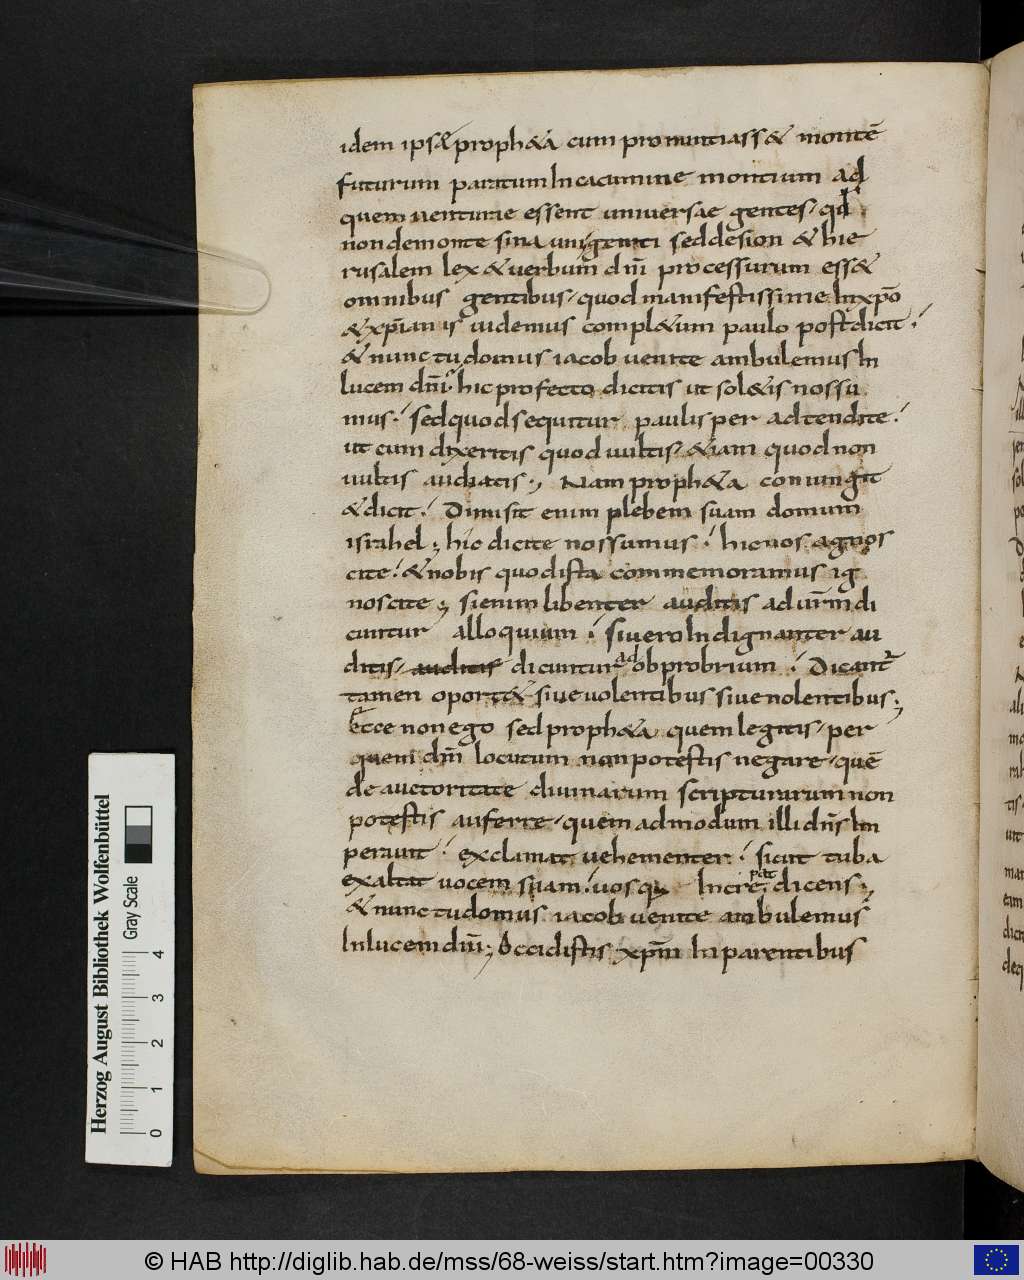 idem ipsę proph&a cum pronuntiass& montē
futurum paratum In cacumine montium ad
quem venturae essent universae gentes, qđ
non demonte sina uni genti sed desion & hie
rusalem lex & verbum dn̄i processurum ess&
omnibus gentibus, quod manifestissime In xp̄o
& xp̄ianis videmus compl&um paulo post dicit.
& nunc tu domus iacob venite ambulemus In
lucem dn̄i. hic profecto dicitis ut sol&is nos su
mus. sed quod sequitur paulisper adtendite.
ut cum dixeritis quod vultis, &iam quod non
vultis audiatis; Nam proph&a coniungit
& dicit. Dimisit enim plebem suam domum
israhel; hic dicite nos sumus. hic vos agnos
cite. & nobis quod ista commemoramus ig
noscite; si enim libenter auditis ad ūr̄m di
cuntur alloquium. si vero Indignanter au
ditis, auditis dicuntur ad obprobrium. Dicant̄
tamen oport& sive volentibus sive nolentibus;
Ecce non ego sed proph&a quem legitis, per
quem dn̄m locutum non potestis negare, quē
de auctoritate divinarum scripturarum non
potestis auferre, quem admodum illi dn̄s Im
peravit. exclamat vehementer. sicut tuba
exaltat vocem suam. vosq; Increpat dicens;
& nunc tu domus iacob venite ambulemus
In lucem dn̄i; Occidistis xp̄m In parentibus
Herzog August Bibliothek Wolfenbüttel
Gray Scale
0 1 2 3 4
© HAB http://diglib.hab.de/mss/68-weiss/start.htm?image=00330